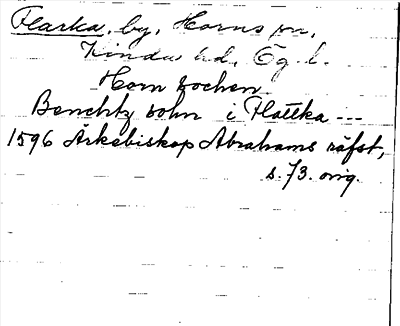 Flarka, by, Horns sn,
Kinda hd, Ög. l.
Horn sochen
Benchtz sohn i Flattka ---
1596 Ärkebiskop Abrahams räfst,
s. 73. orig.